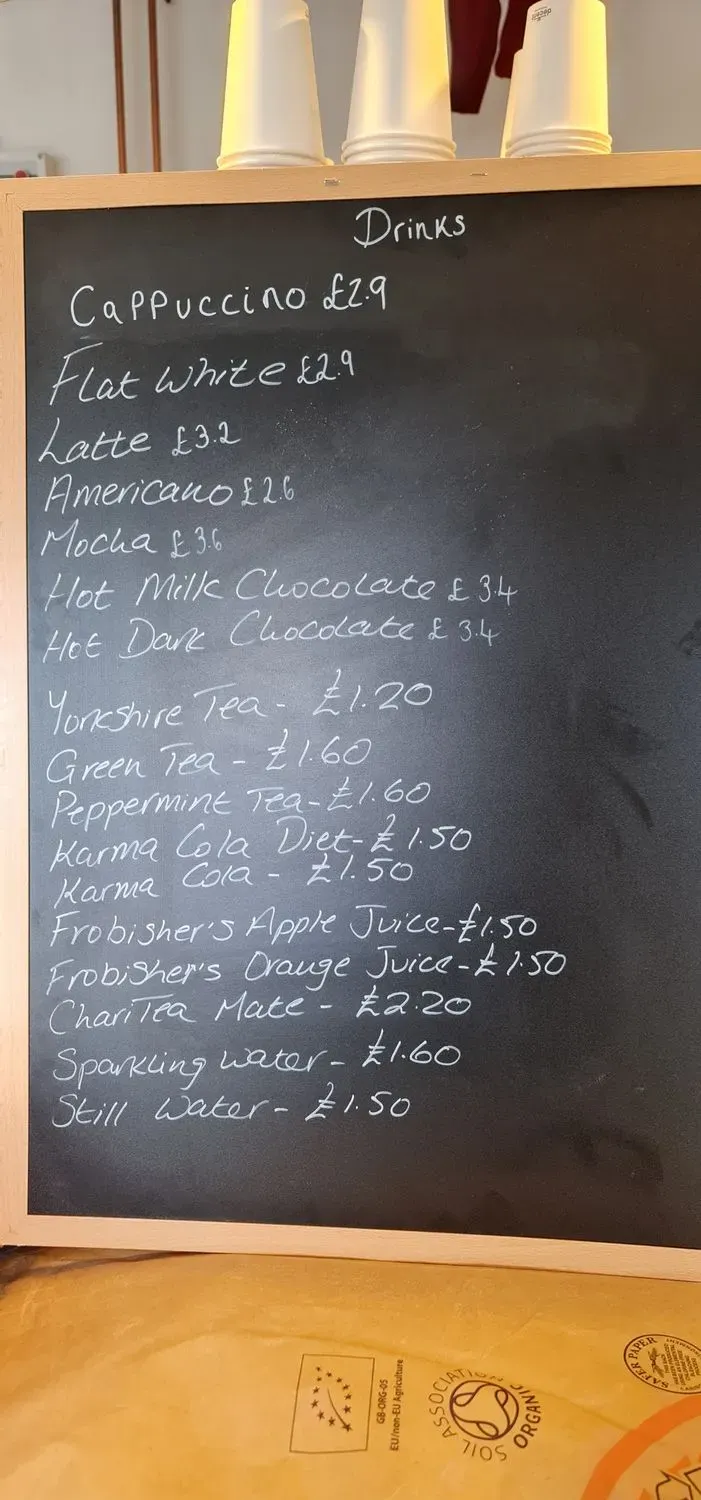 Drinks
Cappuccino £2.9
Flat White £2.9
Latte £3.2
Americano £2.6
Mocha £3.6
Hot Milk Chocolate £3.4
Hot Dark Chocolate £3.4
Yorkshire Tea - £1.20
Green Tea - £1.60
Peppermint Tea - £1.60
Karma Cola Diet - £1.50
Karma Cola - £1.50
Frobisher's Apple Juice - £1.50
Frobisher's Orange Juice - £1.50
ChariTea Mate - £2.20
Sparkling water - £1.60
Still Water - £1.50
GB-ORG-05
EU/non-EU Agriculture
SOIL ASSOCIATION ORGANIC
SAFER PAPER